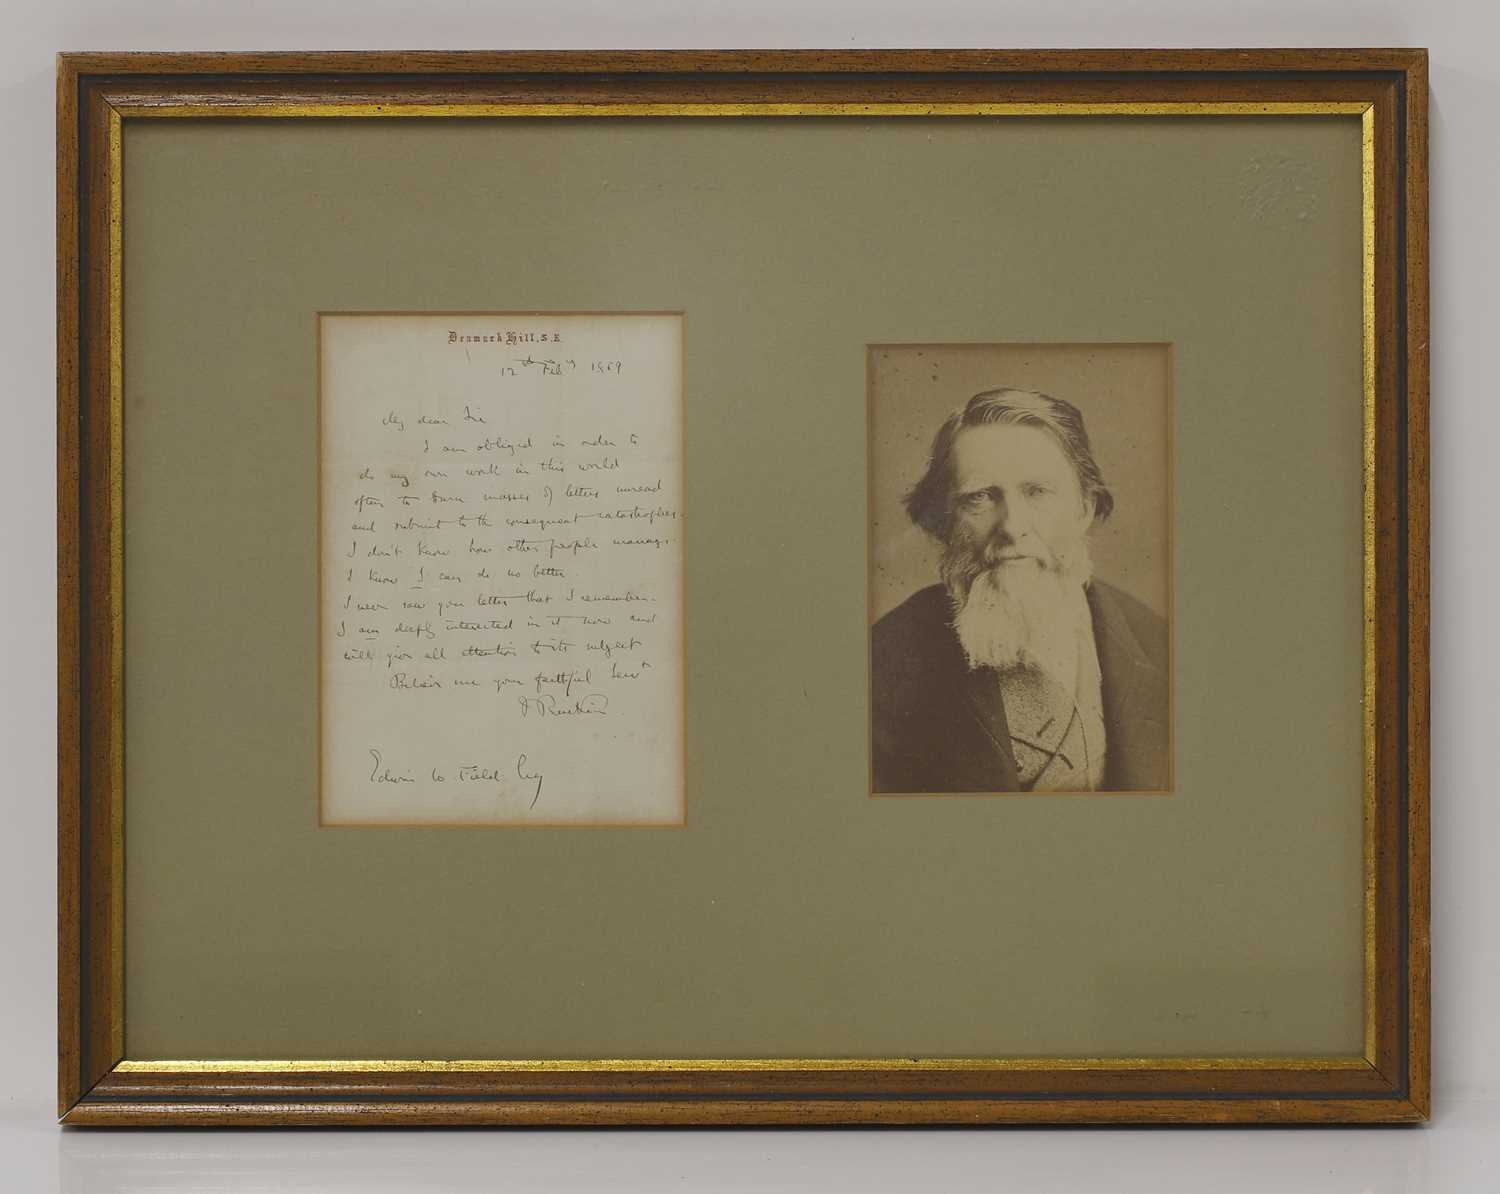 Denmark Hill, S.E.
12th Feby 1869
My dear Sir
I am obliged in order to
do my own work in this world
often to burn masses of letters unread
and submit to the consequent catastrophes.
I don't know how other people manage.
I know I can do no better.
I never saw your letter that I remember.
I am deeply interested in it now and
will give all attention to its subject
Believe me your faithful Servt
J Ruskin.
Edwin W. Field Esq